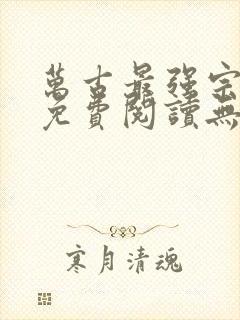 萬古最強宗
免費閱讀無
寒月清魂